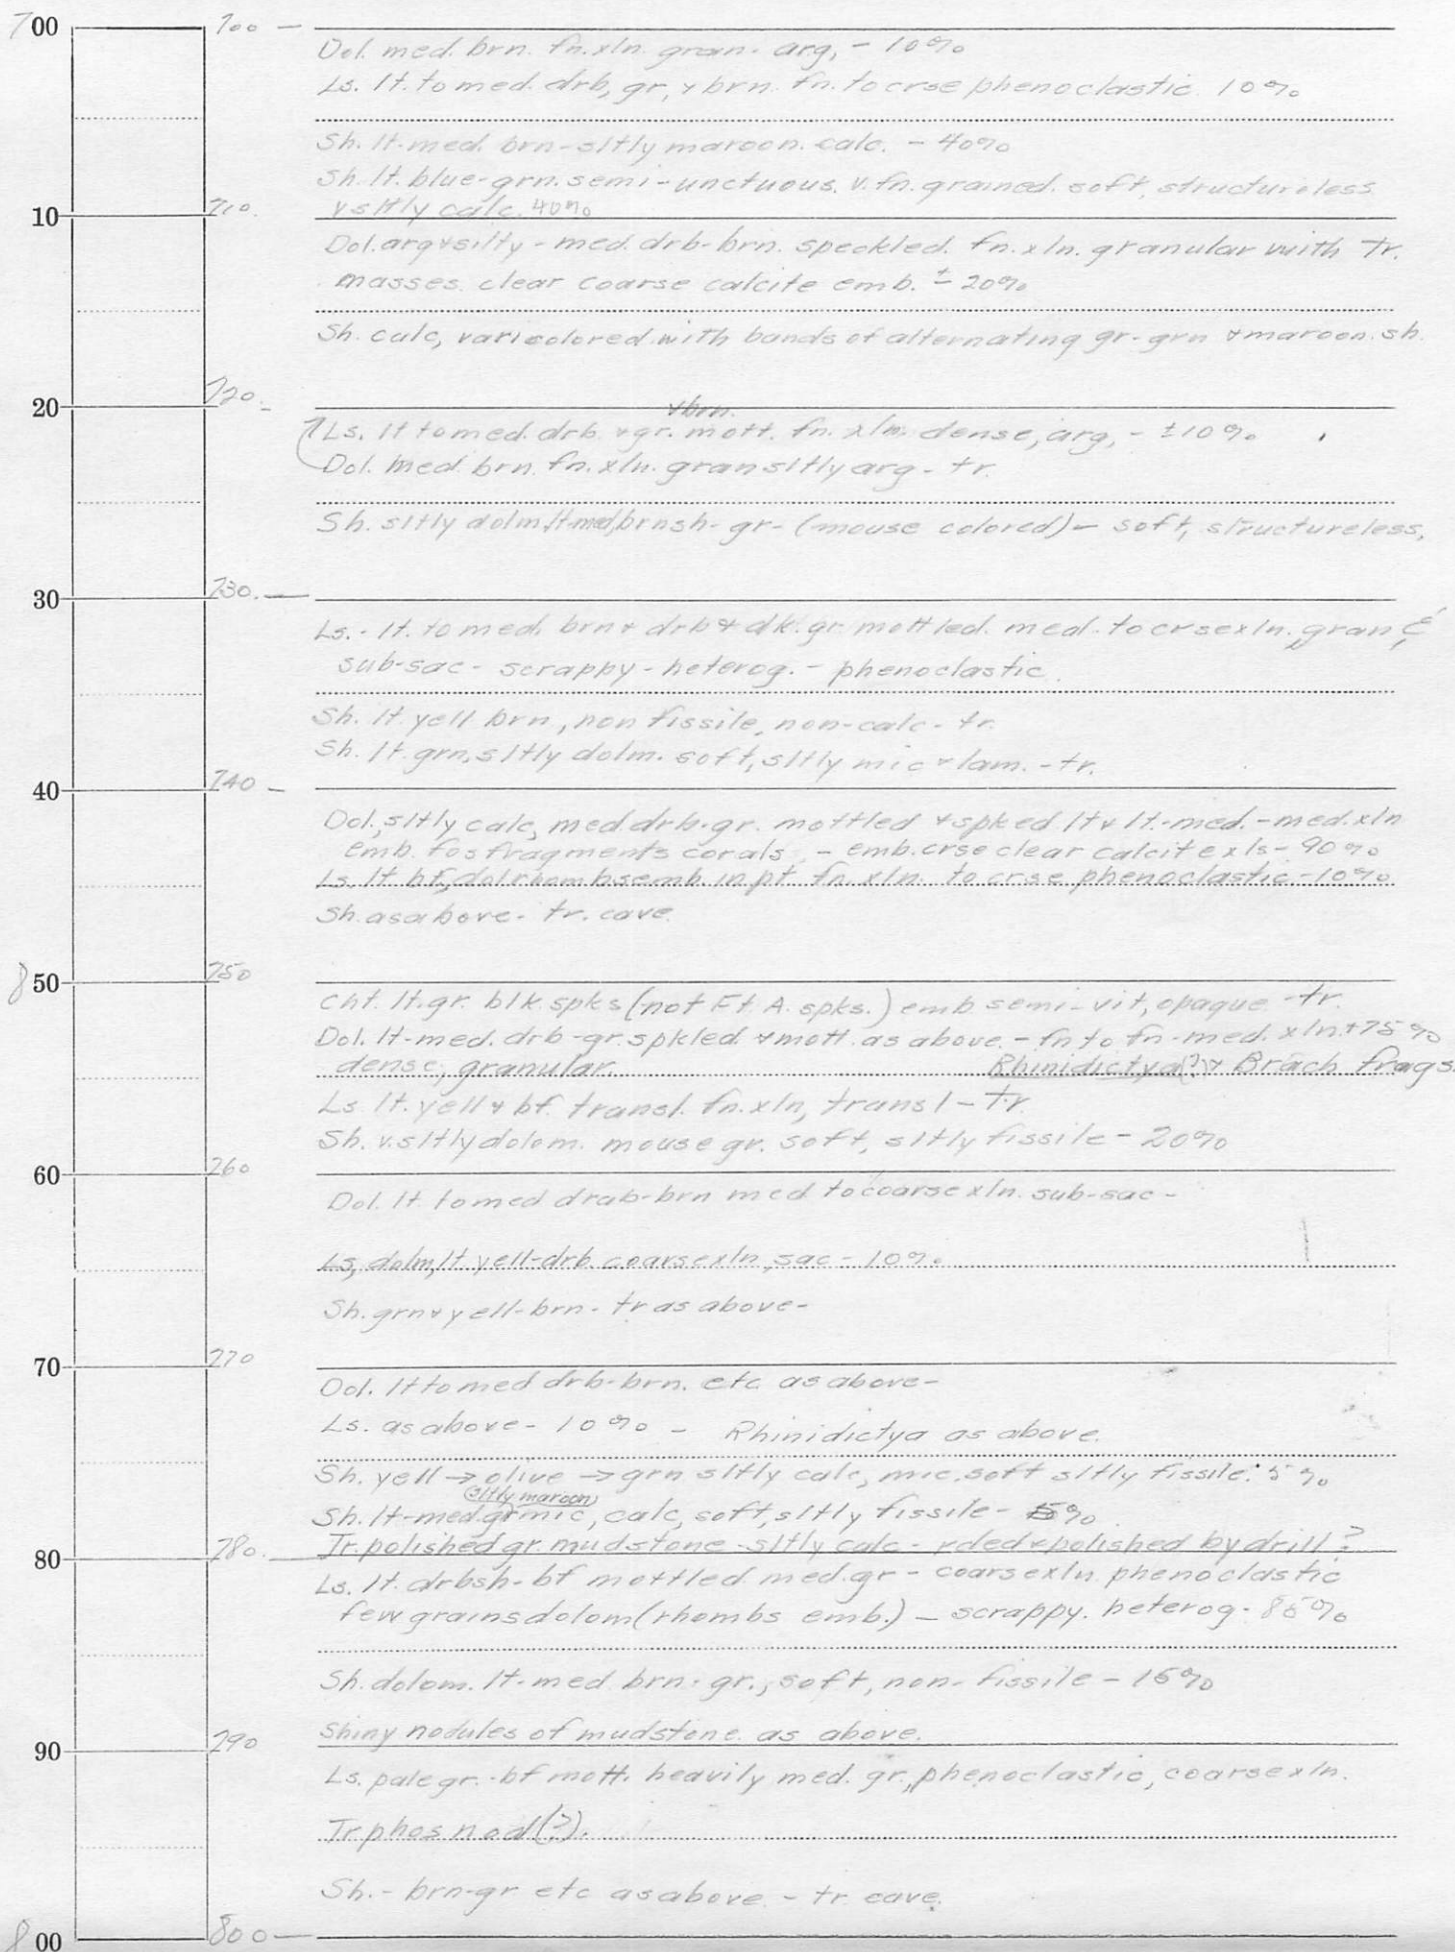 700 700
Dol. med. brn. fn. xln. gran. arg, - 10%
Ls. lt. to med. drb, gr, & brn. fn. to crse phenoclastic. 10%
Sh. lt.-med. brn-sltly maroon. calc. - 40%
Sh. lt. blue-grn. semi-unctuous. v. fn. grained. soft, structureless
10 710. & sltly calc. 40%
Dol. arg & silty - med. drb-brn. speckled. fn. xln. granular with tr.
masses. clear coarse calcite emb. ± 20%
Sh. calc, varicolored with bands of alternating gr-grn & maroon. sh.
20 720.
& brn.
Ls. lt to med. drb & gr. mott. fn. xln. dense, arg, - ±10%
Dol. med. brn. fn. xln. gran sltly arg - tr.
Sh. sltly dolm, lt-med, brnsh-gr- (mouse colored) - soft, structureless,
30 730.
Ls. - lt. to med. brn & drb & dk. gr. mottled. med. to crse xln. gran &
sub-sac - scrappy - heterog. - phenoclastic.
Sh. lt. yell brn, non fissile, non-calc - tr.
Sh. lt. grn, sltly dolm. soft, sltly mic & lam. - tr.
40 740
Dol., sltly calc, med. drb-gr. mottled & spked lt & lt.-med. - med. xln
emb. fos fragments corals, - emb. crse clear calcite xls - 90%
Ls. lt. bf, dol rhombs emb. in pt fn. xln. to crse phenoclastic - 10%
Sh. as above - tr. cave.
850 750
Cht. lt. gr. blk. spks (not Ft. A. spks.) emb semi-vit, opaque - tr.
Dol. lt-med. drb-gr. spkled & mott. as above - fn to fn-med. xln. ±75%
dense, granular. Rhinidictya(?) & Brach frags.
Ls. lt. yell & bf. transl. fn. xln, transl - Tr
Sh. v. sltly dolom. mouse gr. soft, sltly fissile - 20%
60 760
Dol. lt. to med drab-brn med to coarse xln. sub-sac -
Ls, dolm, lt yell-drb. coarse xln, sac - 10%
Sh. grn & yell-brn - tr as above -
70 770
Dol. lt to med drb-brn. etc. as above -
Ls. as above - 10% - Rhinidictya as above.
Sh. yell → olive → grn sltly calc, mic, soft sltly fissile. 5%
(sltly maroon)
Sh. lt-med. gr mic, calc, soft, sltly fissile - 5%
80 780. Tr. polished gr. mudstone - sltly calc - rded & polished by drill?
Ls. lt. drbsh-bf mottled med. gr - coarse xln. phenoclastic
few grains dolom (rhombs emb.) - scrappy. heterog - 85%
Sh. dolom. lt-med brn-gr., soft, non-fissile - 15%
90 790 Shiny nodules of mudstone as above.
Ls. pale gr.-bf mott. heavily med. gr., phenoclastic, coarse xln.
Tr phos nod (?).
Sh. - brn-gr etc as above - tr cave.
800 800